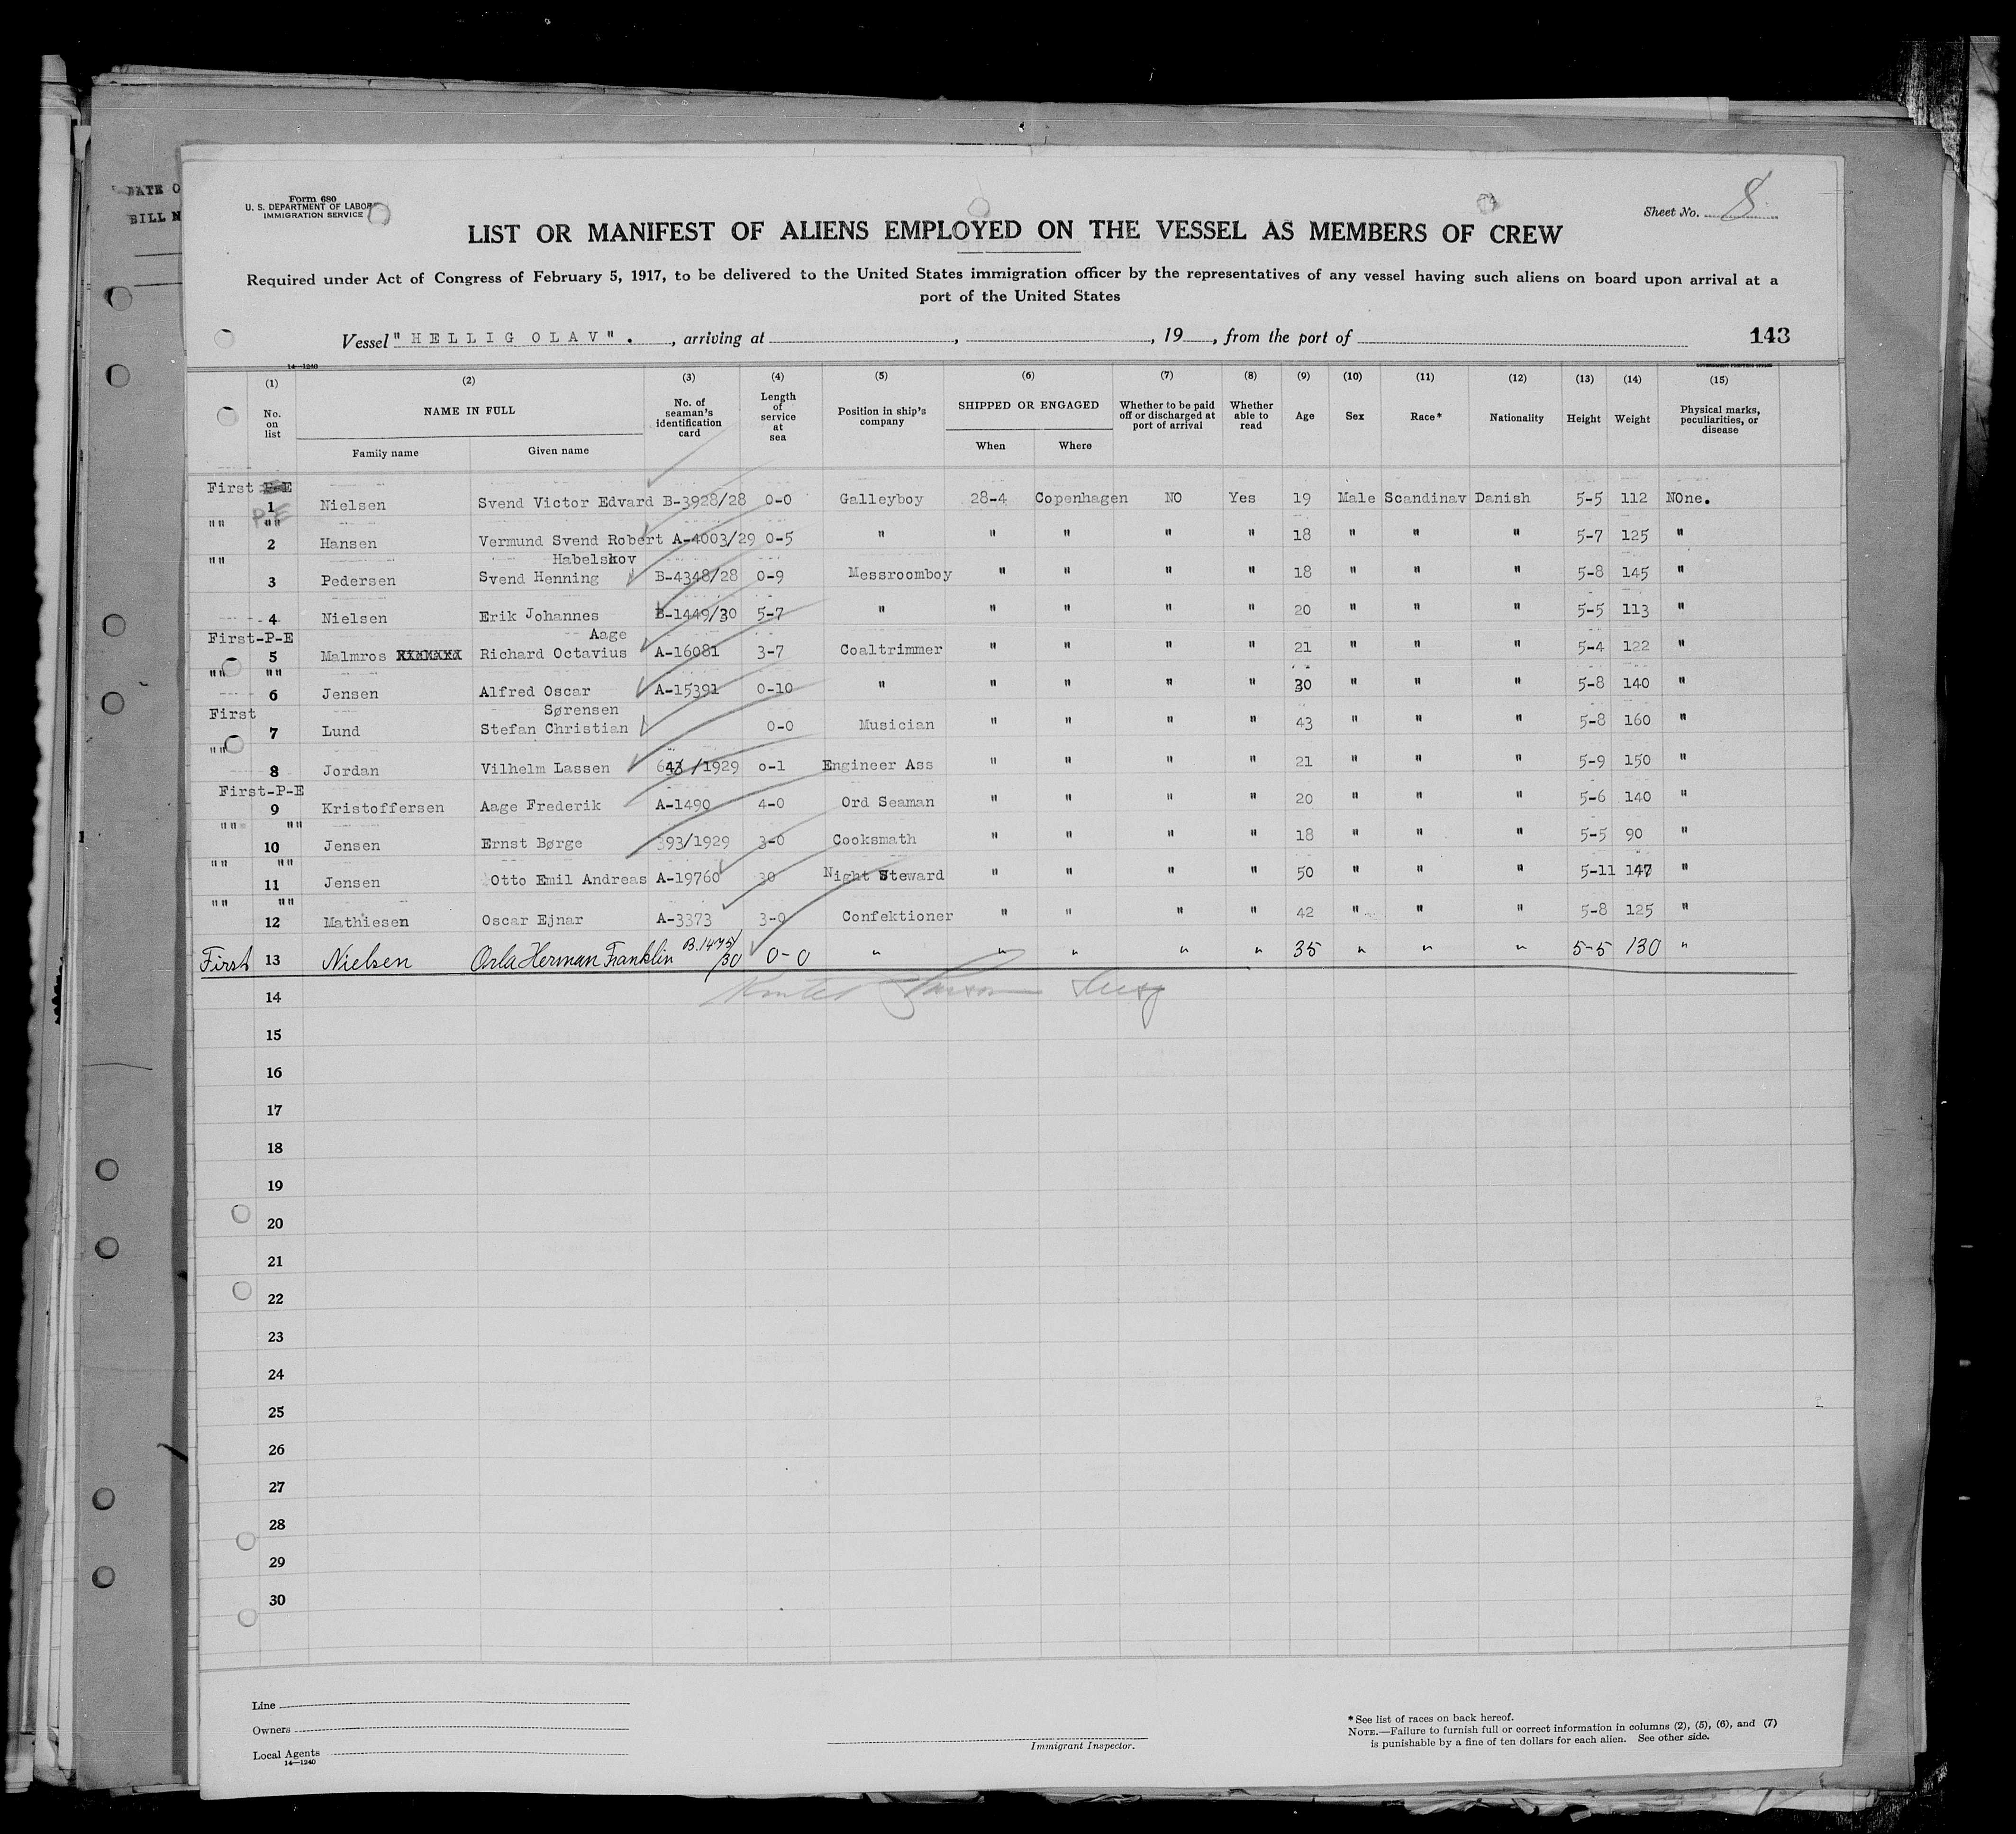 DATE O
BILL N
Form 680
U. S. DEPARTMENT OF LABOR
IMMIGRATION SERVICE
Sheet No. 8
LIST OR MANIFEST OF ALIENS EMPLOYED ON THE VESSEL AS MEMBERS OF CREW
Required under Act of Congress of February 5, 1917, to be delivered to the United States immigration officer by the representatives of any vessel having such aliens on board upon arrival at a
port of the United States
Vessel "HELLIG OLAV". , arriving at , , 19 , from the port of 143
14—1240
(1) (2) (3) (4) (5) (6) (7) (8) (9) (10) (11) (12) (13) (14) (15)
No. on list NAME IN FULL No. of seaman's identification card Length of service at sea Position in ship's company SHIPPED OR ENGAGED Whether to be paid off or discharged at port of arrival Whether able to read Age Sex Race* Nationality Height Weight Physical marks, peculiarities, or disease
Family name Given name When Where
First P-E
1 Nielsen Svend Victor Edvard B-3928/28 0-0 Galleyboy 28-4 Copenhagen NO Yes 19 Male Scandinav Danish 5-5 112 NOne.
"" P-E ""
2 Hansen Vermund Svend Robert A-4003/29 0-5 " " " " " 18 " " " 5-7 125 "
"" Habelskov
3 Pedersen Svend Henning B-4348/28 0-9 Messroomboy " " " " 18 " " " 5-8 145 "
4 Nielsen Erik Johannes B-1449/30 5-7 " " " " " 20 " " " 5-5 113 "
First-P-E Aage
5 Malmros Richard Octavius A-16081 3-7 Coaltrimmer " " " " 21 " " " 5-4 122 "
"" ""
6 Jensen Alfred Oscar A-15391 0-10 " " " " " 30 " " " 5-8 140 "
First Sørensen
7 Lund Stefan Christian 0-0 Musician " " " " 43 " " " 5-8 160 "
""
8 Jordan Vilhelm Lassen 643/1929 0-1 Engineer Ass " " " " 21 " " " 5-9 150 "
First-P-E
9 Kristoffersen Aage Frederik A-1490 4-0 Ord Seaman " " " " 20 " " " 5-6 140 "
"" ""
10 Jensen Ernst Børge 393/1929 3-0 Cooksmath " " " " 18 " " " 5-5 90 "
"" ""
11 Jensen Otto Emil Andreas A-19760 30 Night Steward " " " " 50 " " " 5-11 147 "
"" ""
12 Mathiesen Oscar Ejnar A-3373 3-0 Confektioner " " " " 42 " " " 5-8 125 "
First 13 Nielsen Orla Herman Franklin B.1475/30 0-0 " " " " " 35 " " " 5-5 130 "
14
15
16
17
18
19
20
21
22
23
24
25
26
27
28
29
30
Line
Owners
Local Agents
14—1240
Immigrant Inspector.
* See list of races on back hereof.
NOTE.—Failure to furnish full or correct information in columns (2), (5), (6), and (7)
is punishable by a fine of ten dollars for each alien. See other side.